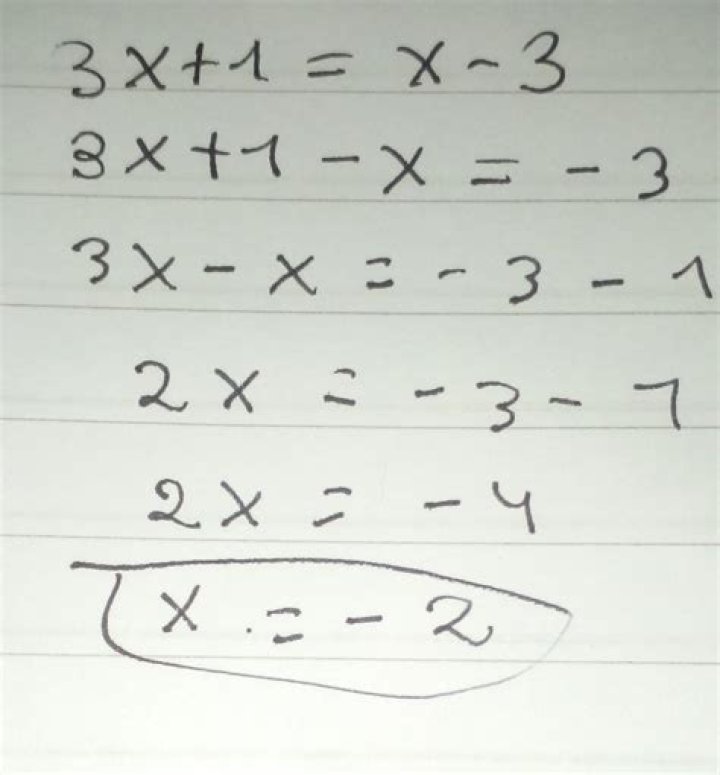 3x+1 = x-3
3x+1-x = -3
3x-x = -3-1
2x = -3-1
2x = -4
x = -2